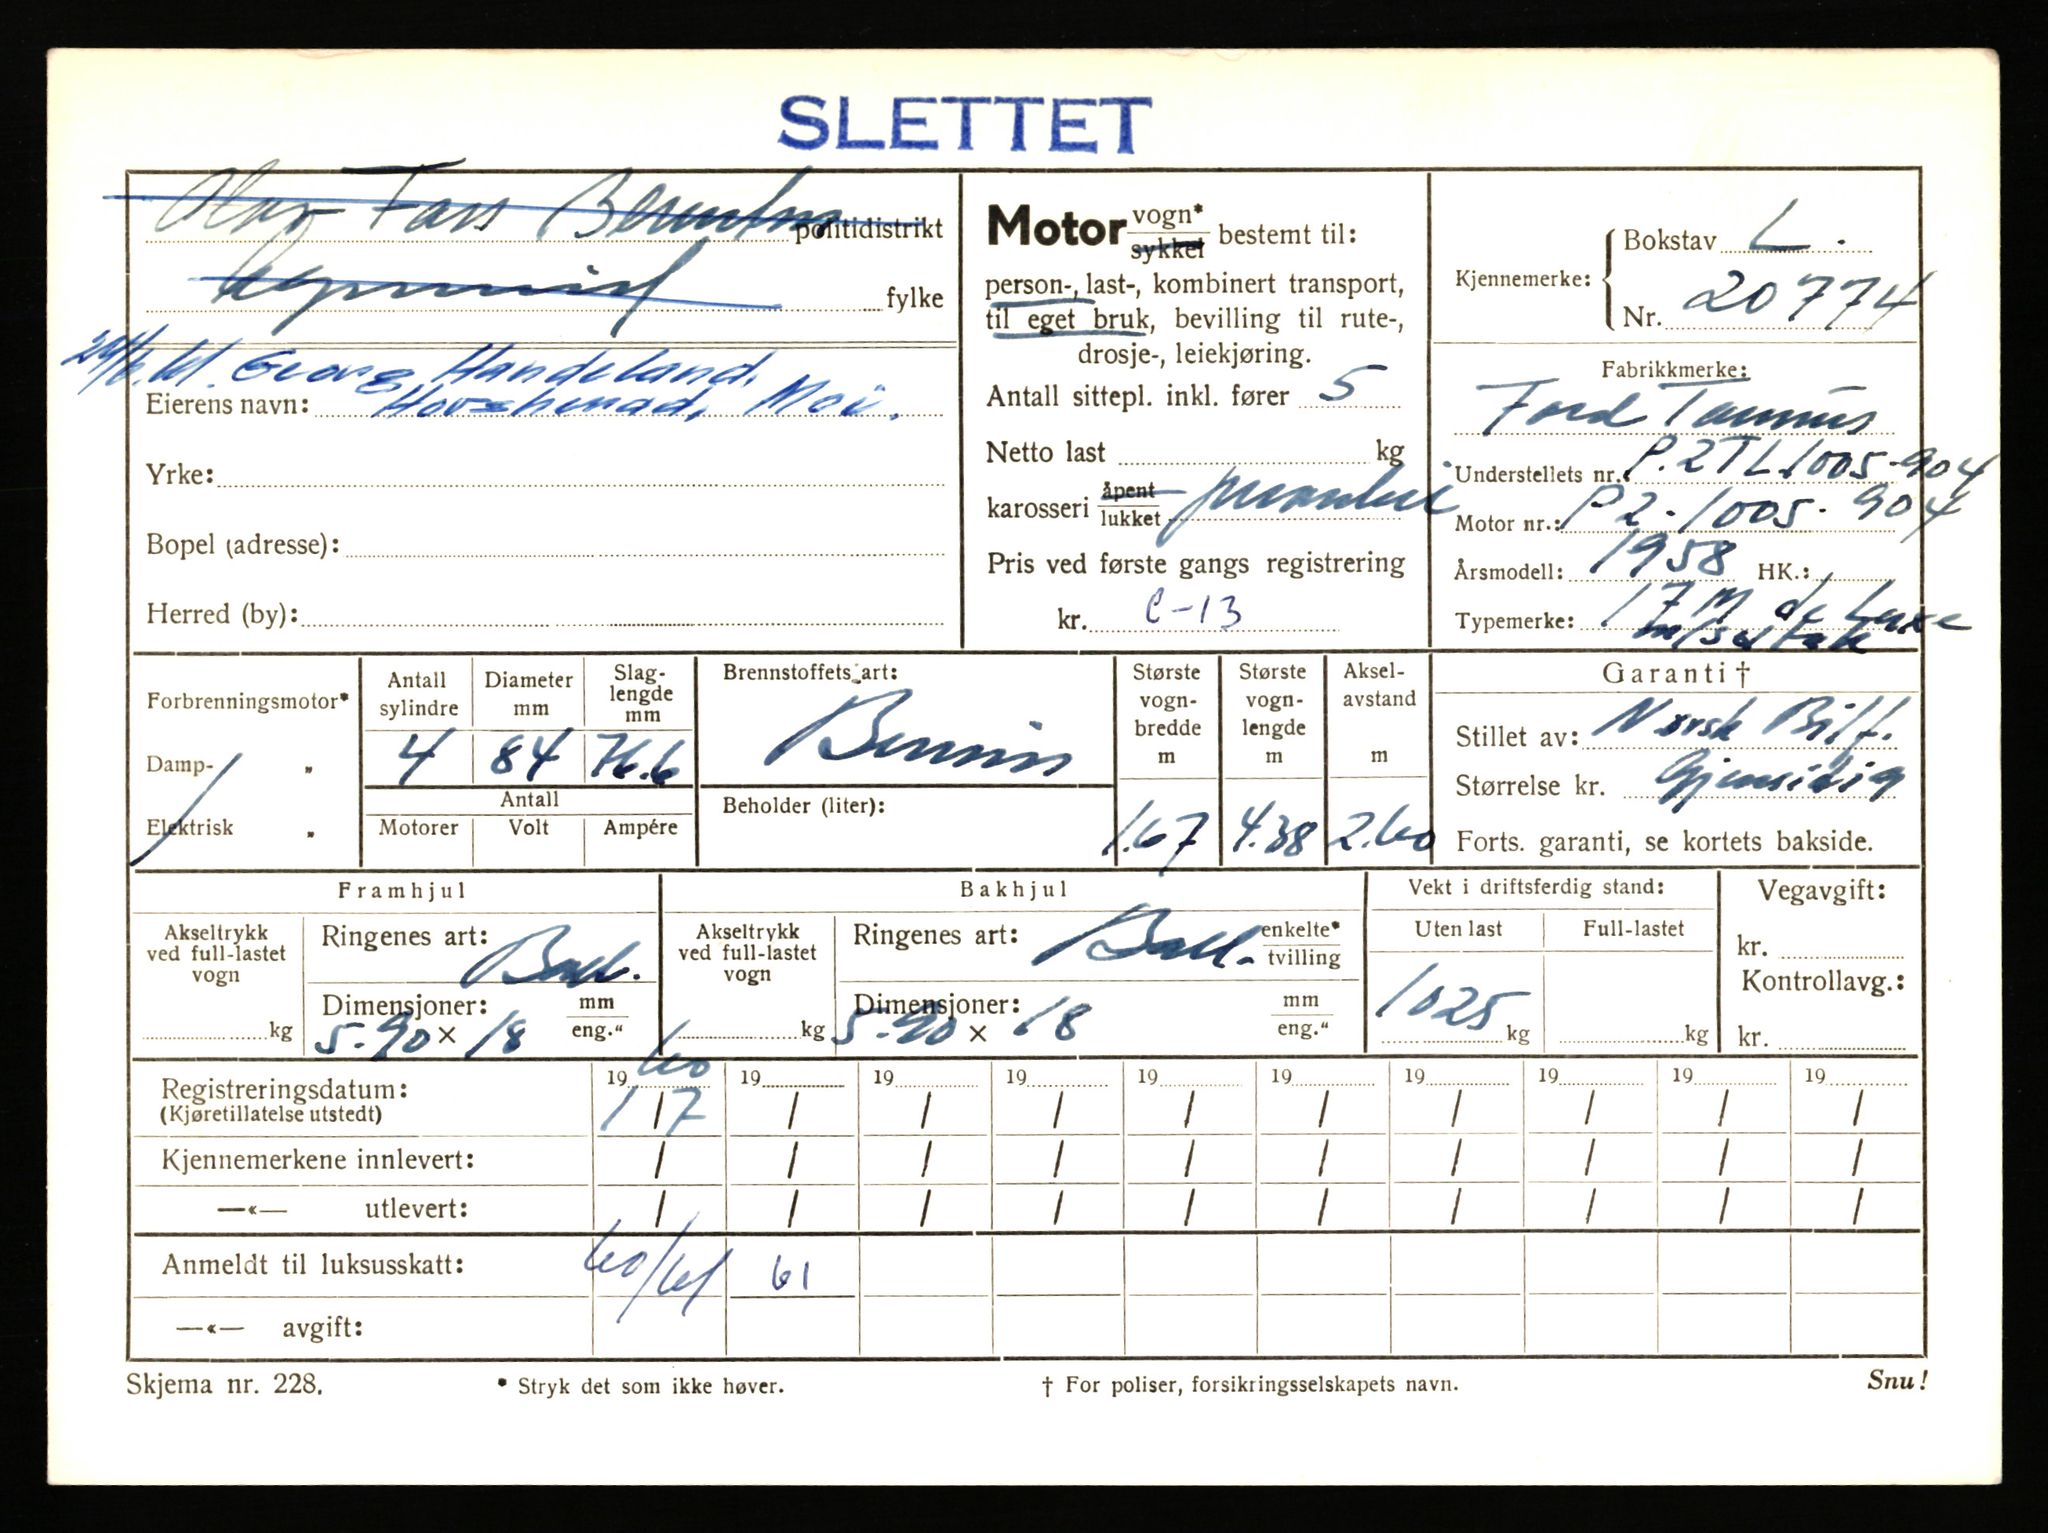 SLETTET
Olav Fass politidistrikt
fylke
24/6.61. Georg Handeland,
Eierens navn: Hovsherad, Moi.
Yrke:
Bopel (adresse):
Herred (by):
Motor vogn* sykkel bestemt til:
person-, last-, kombinert transport,
til eget bruk, bevilling til rute-,
drosje-, leiekjøring.
Antall sittepl. inkl. fører 5
Netto last kg
karosseri åpent lukket
Pris ved første gangs registrering
kr. C-13
Kjennemerke: Bokstav L.
Nr. 20774
Fabrikkmerke:
Ford Taunus
Understellets nr. P.2TL.1005-904
Motor nr.: P2-1005-904
Årsmodell: 1958 HK.:
Typemerke: 17 M de Luxe
m/soltak
Forbrenningsmotor*
Damp- „
Elektrisk „
Antall sylindre Diameter mm Slag-lengde mm
4 84 76.6
Antall
Motorer Volt Ampére
Brennstoffets art:
Bensin
Beholder (liter):
Største vogn-bredde m
1.67
Største vogn-lengde m
4.38
Aksel-avstand m
2.60
Garanti †
Stillet av: Norsk Bilf.
Størrelse kr. Gjensidig
Forts. garanti, se kortets bakside.
Framhjul
Akseltrykk ved full-lastet vogn
kg
Ringenes art: Ball.
Dimensjoner: mm eng."
5-90 × 18
Bakhjul
Akseltrykk ved full-lastet vogn
kg
Ringenes art: Ball. enkelte* tvilling
Dimensjoner: mm eng."
5-90 × 18
Vekt i driftsferdig stand:
Uten last Full-lastet
1025 kg kg
Vegavgift:
kr.
Kontrollavg.:
kr.
Registreringsdatum: 1960 19 19 19 19 19 19 19 19 19
(Kjøretillatelse utstedt) 1/7 / / / / / / / / /
Kjennemerkene innlevert: / / / / / / / / / /
—«— utlevert: / / / / / / / / / /
Anmeldt til luksusskatt: 60/61 61
—«— avgift:
Skjema nr. 228. * Stryk det som ikke høver. † For poliser, forsikringsselskapets navn. Snu!